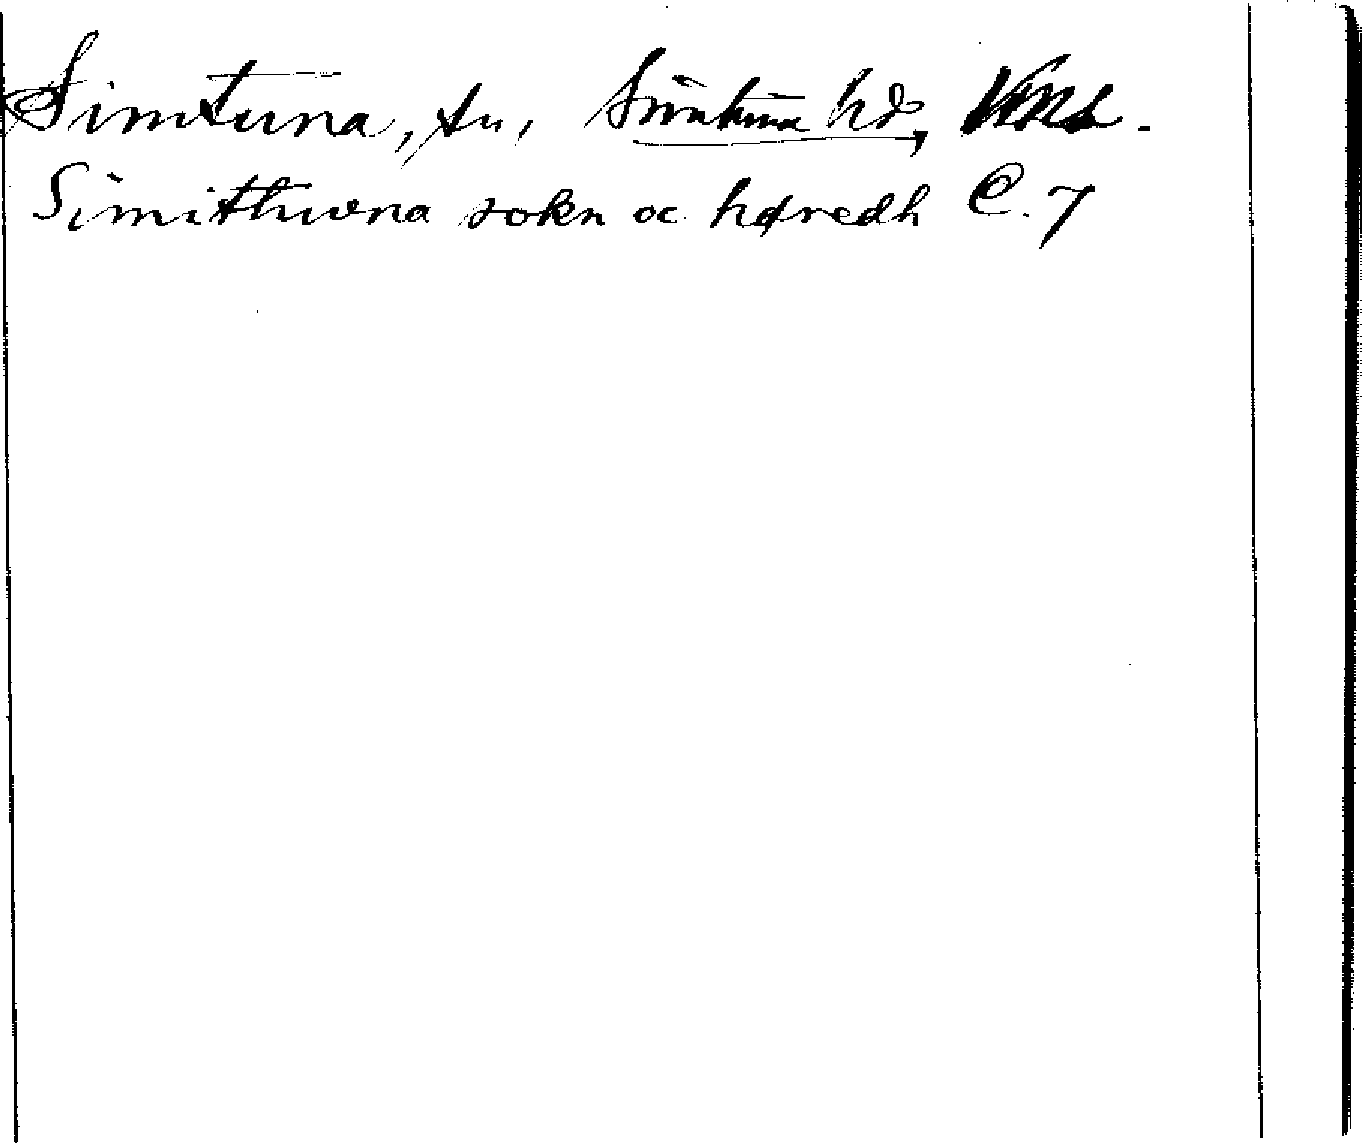 Simtuna, sn, Simtuna hd, Vml.
Simithuna sokn oc høredh C. 7